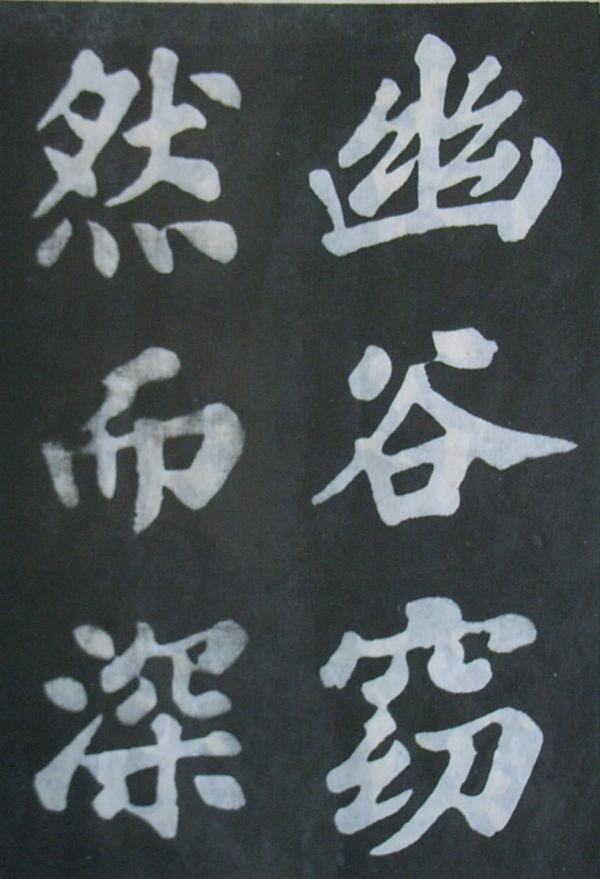 幽谷窈
然而深